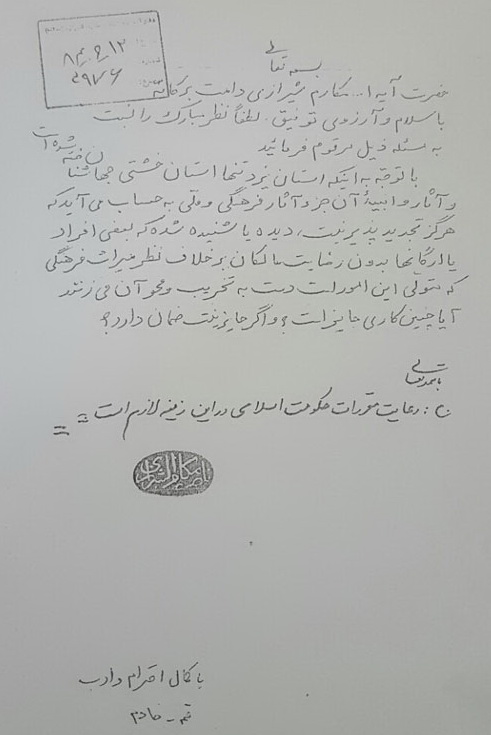 ۸۴٫۶٫۱۲
۲۹۷۶
بسمه تعالی
حضرت آیه ا... مکارم شیرازی دامت برکاته
با سلام و آرزوی توفیق، لطفاً نظر مبارک را نسبت
به مسئله ذیل مرقوم فرمائید
با توجه به اینکه استان یزد تنها استان خشتی جهان شناخته شده است
و آثار و ابنیهٔ آن جزو آثار فرهنگی و ملی به حساب می آید که
هرگز تجدید پذیر نیست، دیده یا شنیده شده که بعضی افراد
یا ارگانها بدون رضایت مالکان برخلاف نظر میراث فرهنگی
که متولی این امور است دست به تخریب و محو آن می زنند
آیا چنین کاری جایز است؟ و اگر جایز نیست ضمان دارد؟
باسمه تعالی
ج: رعایت مقررات حکومت اسلامی در این زمینه لازم است
ناصر مکارم الشیرازی
با کمال احترام و ادب
قم - خادم